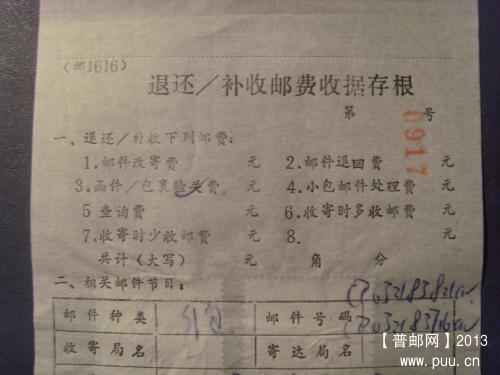 (邮1616)
退还／补收邮费收据存根
第 0917 号
一、退还／补收下列邮费：
1.邮件改寄费 元 2.邮件退回费 元
3.函件／包裹验关费 元 4.小包邮件处理费 元
5 查询费 元 6.收寄时多收邮费 元
7.收寄时少收邮费 元 8. 元
共计(大写) 元 角 分
二、相关邮件节目：
邮件种类 邮件号码
收寄局名 寄达局名
【普邮网】2013
www.puu.cn